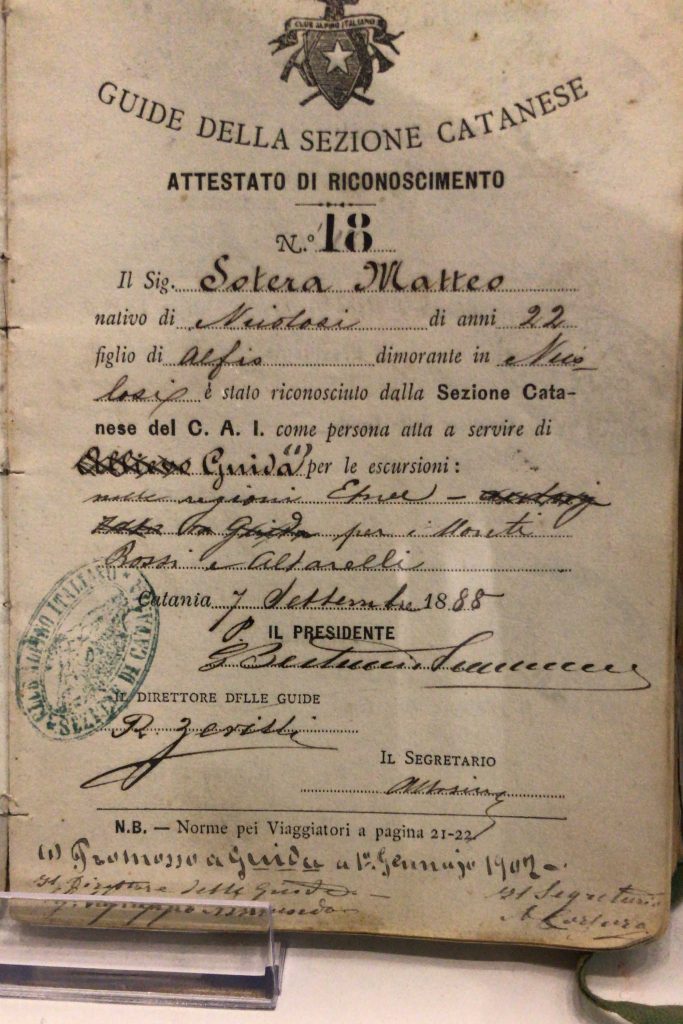 CLUB ALPINO ITALIANO
GUIDE DELLA SEZIONE CATANESE
ATTESTATO DI RICONOSCIMENTO
N.º 18
Il Sig. Sotera Matteo
nativo di Nicolosi di anni 22
figlio di Alfio dimorante in Nico-
losi è stato riconosciuto dalla Sezione Cata-
nese del C. A. I. come persona atta a servire di
Allievo Guida (1) per le escursioni:
nelle regioni Etnee – per i Monti
Rossi e Altarelli
Catania 7 Settembre 1888
P. IL PRESIDENTE
G Bertucci
IL DIRETTORE DFLLE GUIDE
R.
IL SEGRETARIO
CLUB ALPINO ITALIANO
N.B. — Norme pei Viaggiatori a pagina 21-22
(1) Promosso a Guida a 1º Gennajo 1907 –
Il Direttore delle Guide – Il Segretario